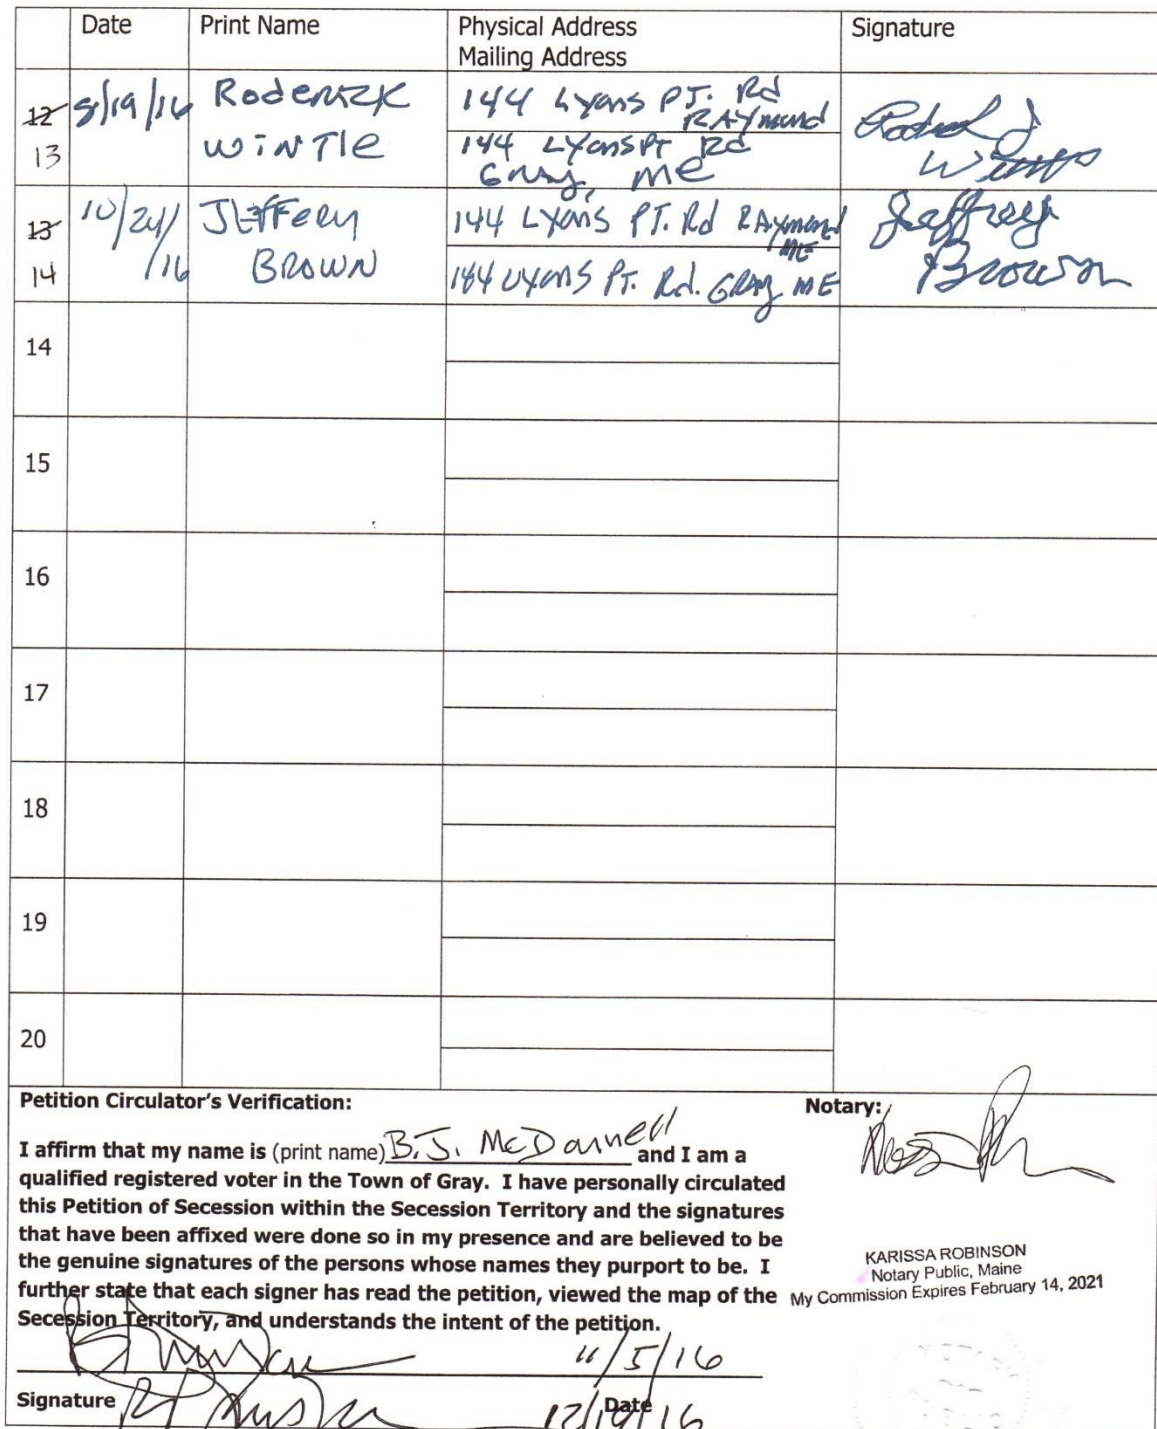 Date Print Name Physical Address Signature
Mailing Address
12 8/19/16 Roderick 144 Lyons PT. Rd
RAYmond
13 WiNTle 144 LYonsPT Rd
Gray, ME
13 10/24/ JEFFery 144 LYons PT. Rd RAYmond
ME
14 /16 BROWN 144 LYons PT. Rd. GRAY ME
Jeffrey
Brown
14
15
16
17
18
19
20
Petition Circulator's Verification: Notary:
I affirm that my name is (print name) B.J. McDannell and I am a
qualified registered voter in the Town of Gray. I have personally circulated
this Petition of Secession within the Secession Territory and the signatures
that have been affixed were done so in my presence and are believed to be
the genuine signatures of the persons whose names they purport to be. I
further state that each signer has read the petition, viewed the map of the
Secession Territory, and understands the intent of the petition.
KARISSA ROBINSON
Notary Public, Maine
My Commission Expires February 14, 2021
11/5/16
Signature Date